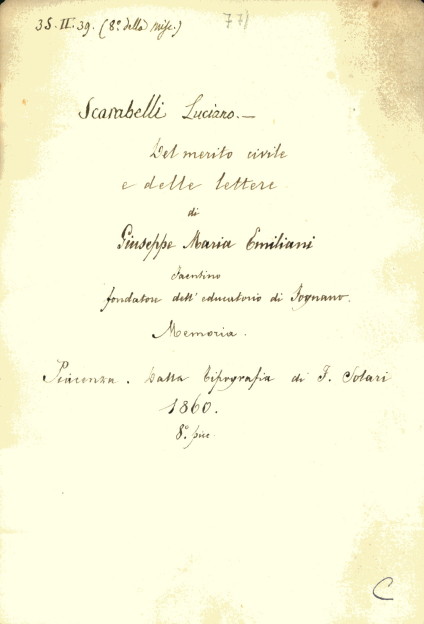 35. II. 39. (8.° della misc.)
771
Scarabelli Luciano. —
Del merito civile
e delle lettere
di
Giuseppe Maria Emiliani
Faentino
fondatore dell' educatorio di Fognano.
Memoria.
Piacenza. Dalla tipografia di F. Solari
1860.
8.° picc.
C